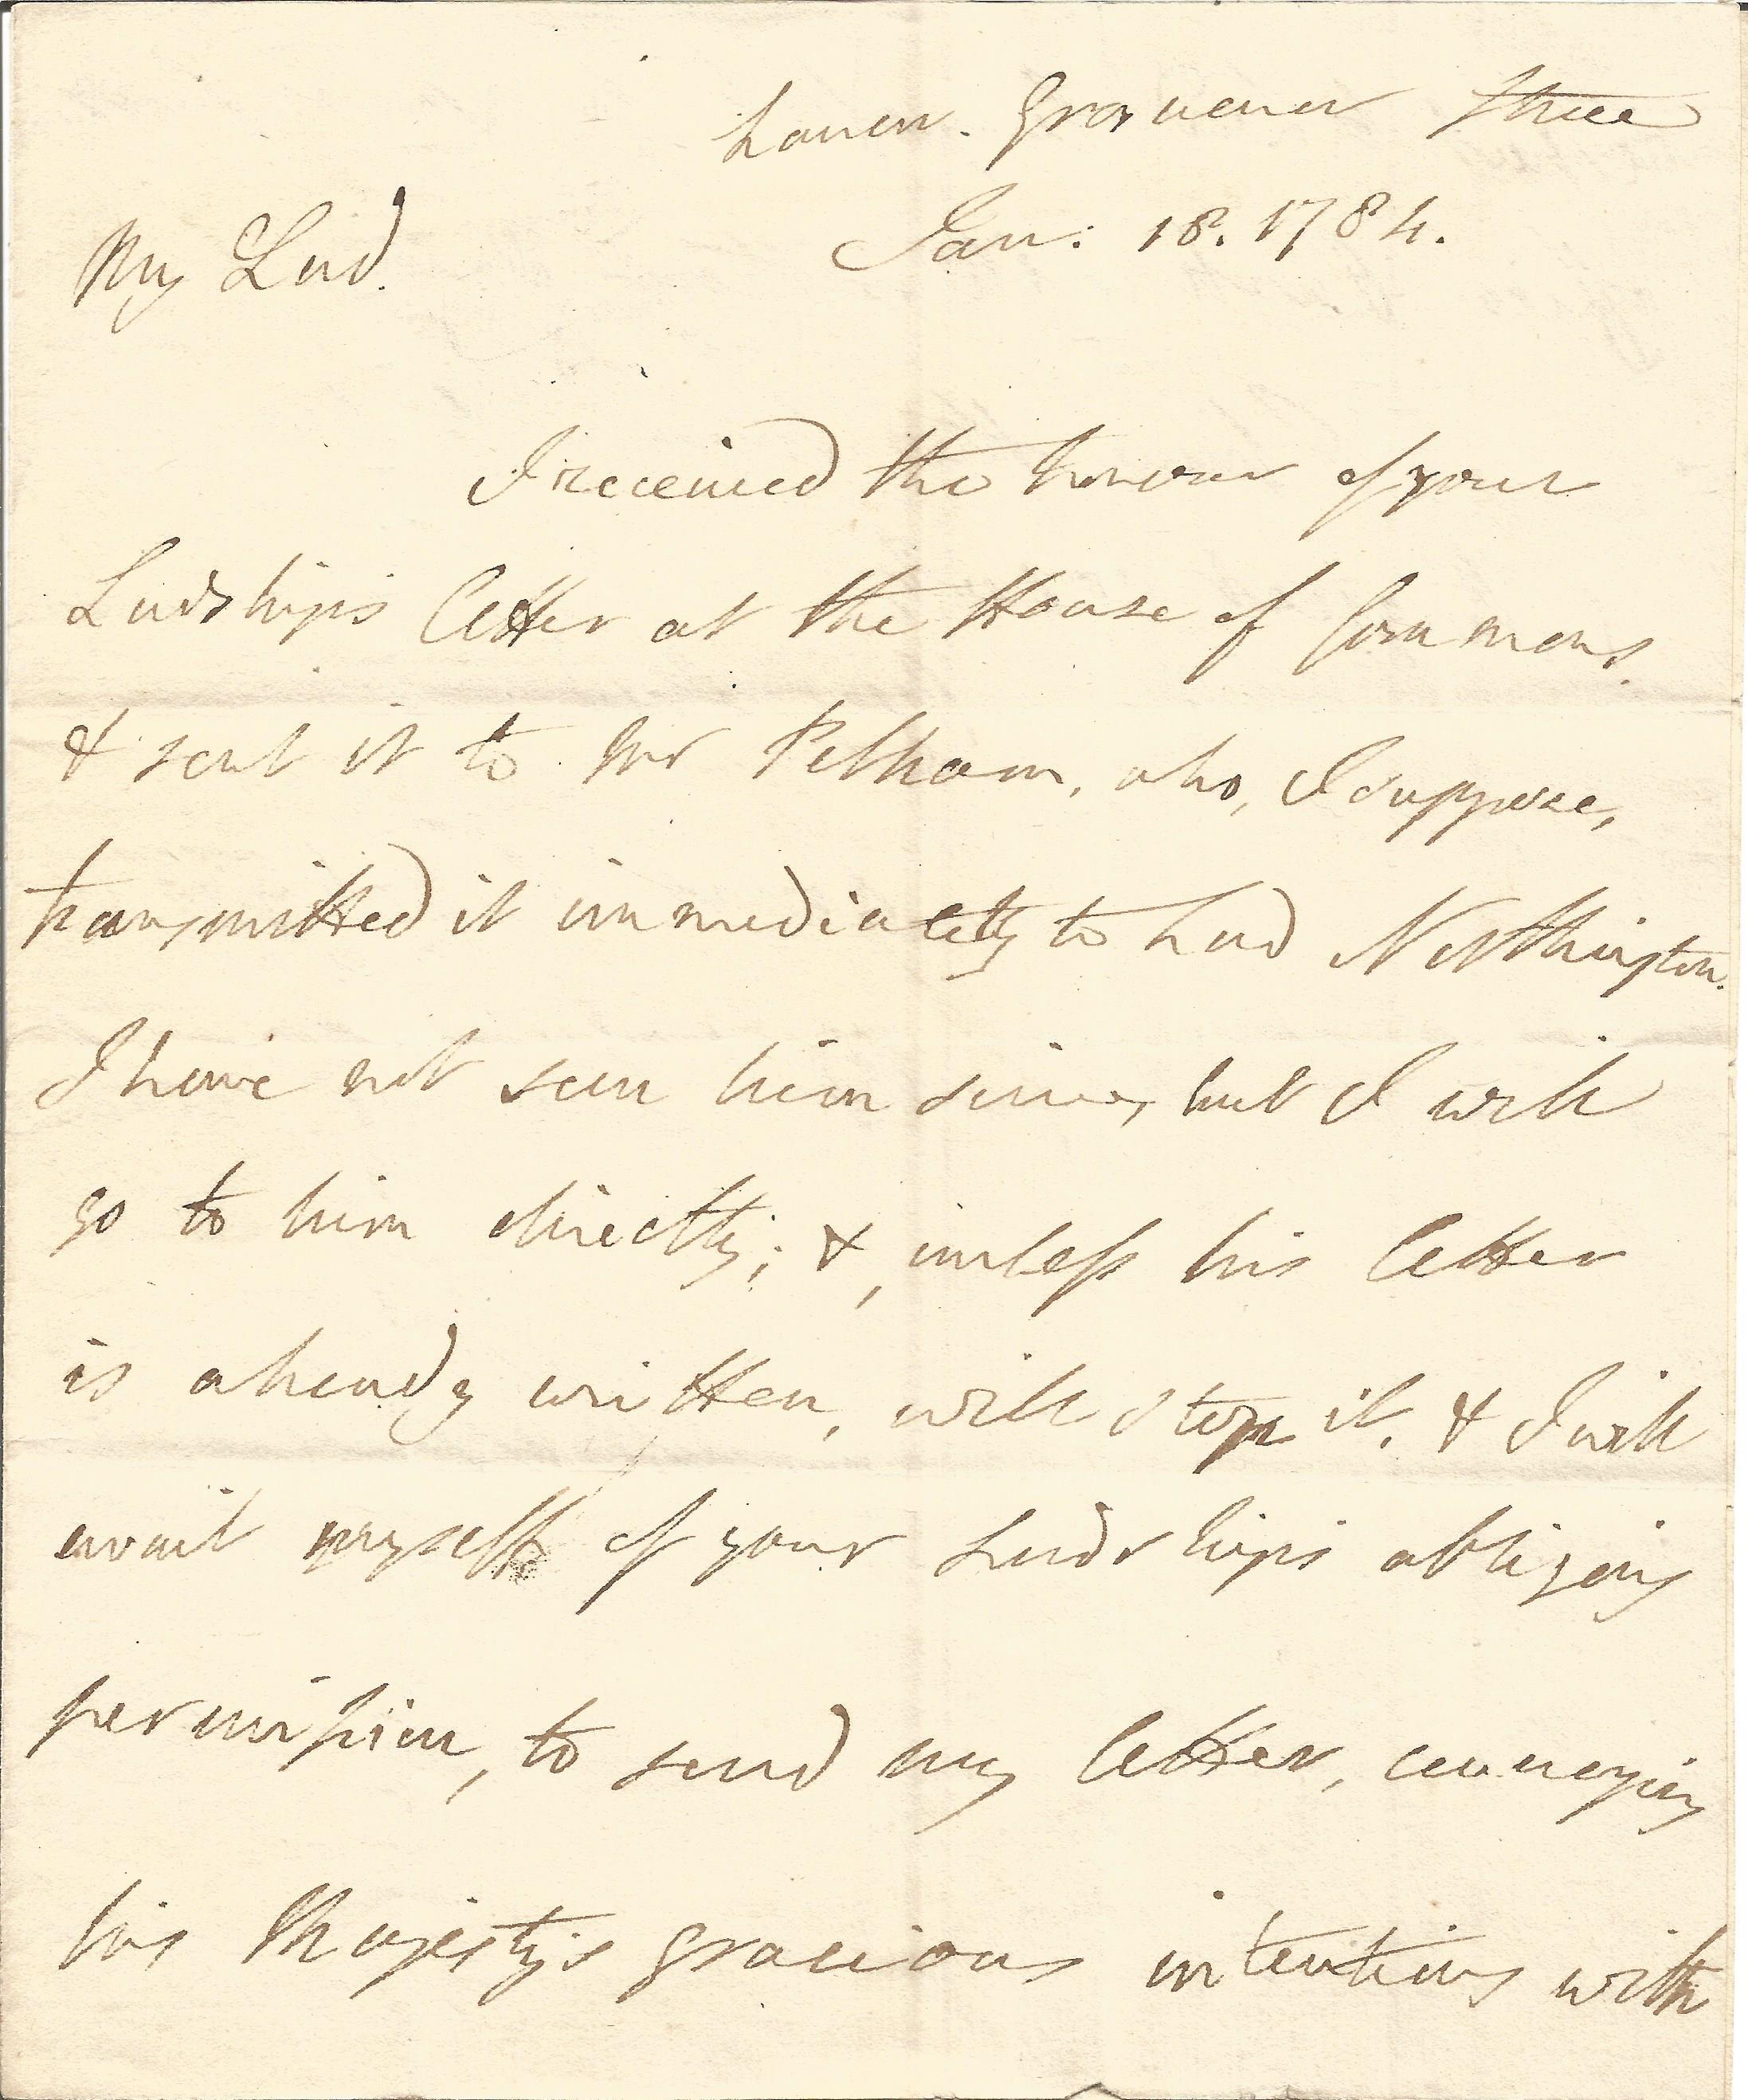 Lower. Grosvenor Stree
Jan: 18. 1784.
My Lord.
I received the honour of your
Lordships letter at the House of Commons.
& sent it to Mr Pelham, who, I suppose,
transmitted it immediately to Lord Northington.
I have not seen him since, but I will
go to him directly; &, unless his letter
is already written, will stop it, & I will
avail myself of your Lordships obliging
permission, to send my letter, conveying
his Majesty's gracious intentions with